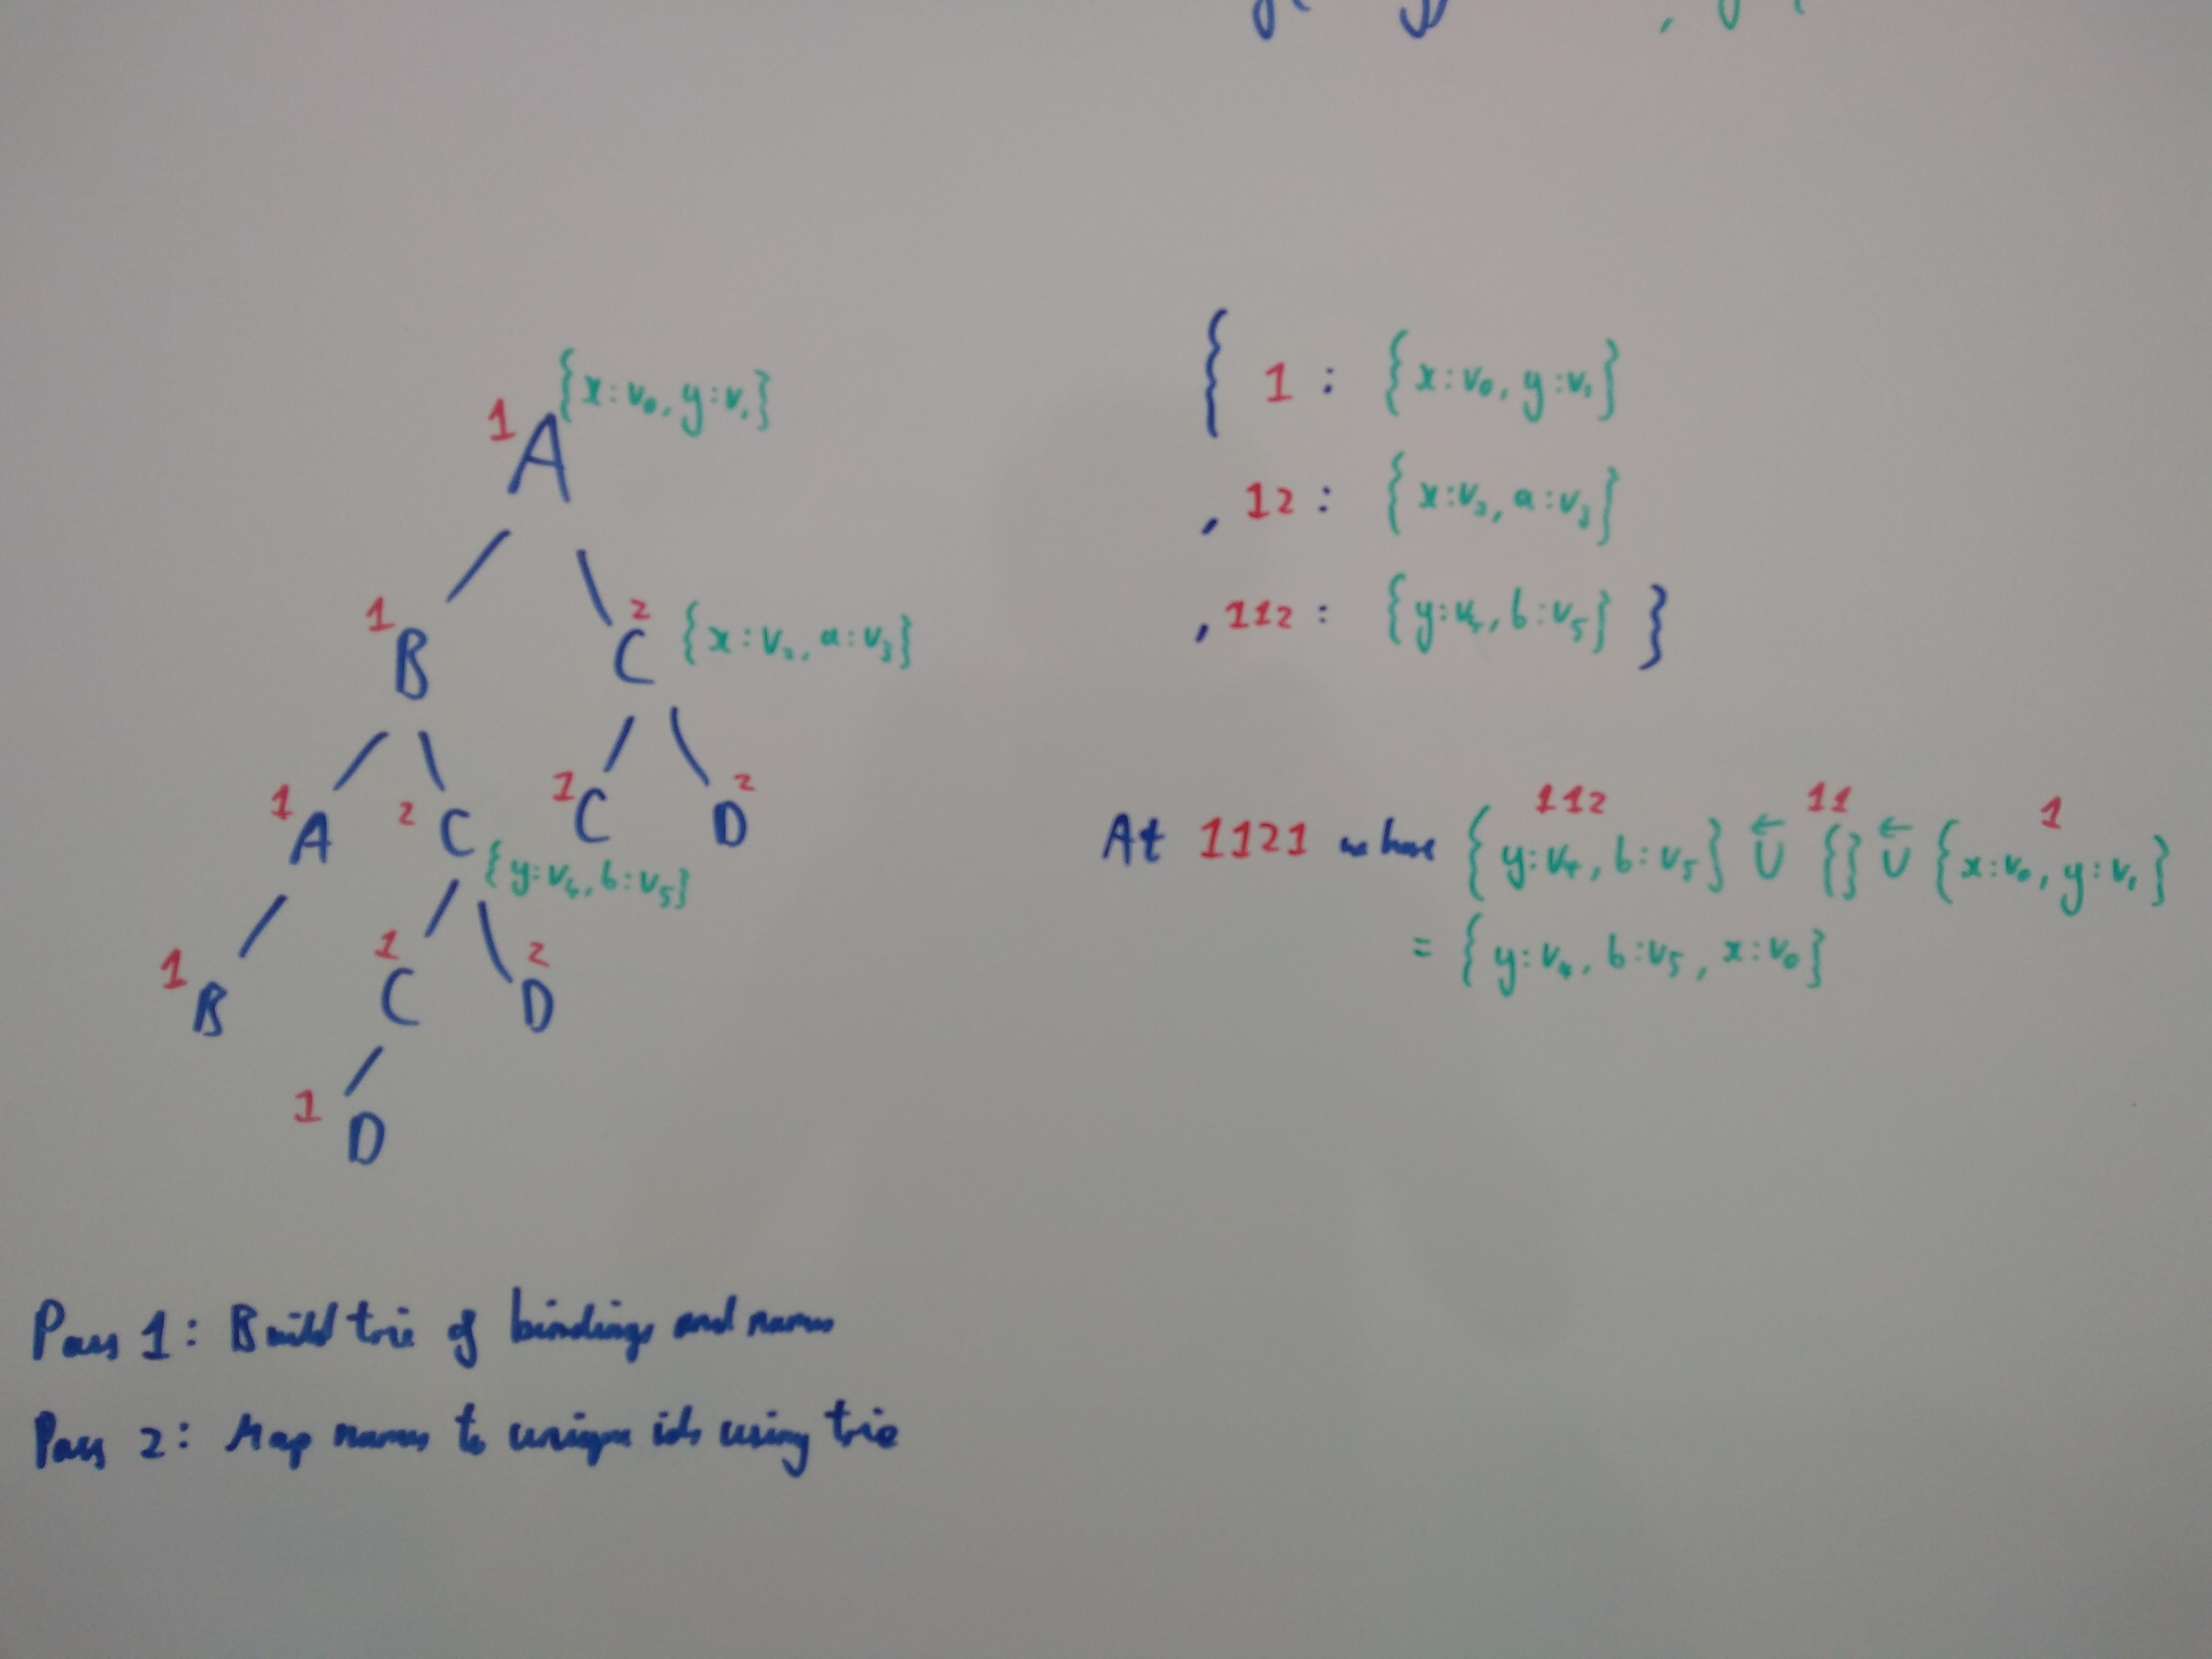 1 A {x:v₀, y:v₁}
1 B 2 C {x:v₂, a:v₃}
1 A 2 C {y:v₄, b:v₅} 1 C D 2
1 B 1 C 2 D
1 D
{ 1 : {x:v₀, y:v₁}
, 12 : {x:v₂, a:v₃}
, 112 : {y:v₄, b:v₅} }
112 11 1
At 1121 we have {y:v₄, b:v₅} ⃖∪ {} ⃖∪ {x:v₀, y:v₁}
= {y:v₄, b:v₅, x:v₀}
Pass 1: Build trie of bindings and names
Pass 2: Map names to unique ids using trie